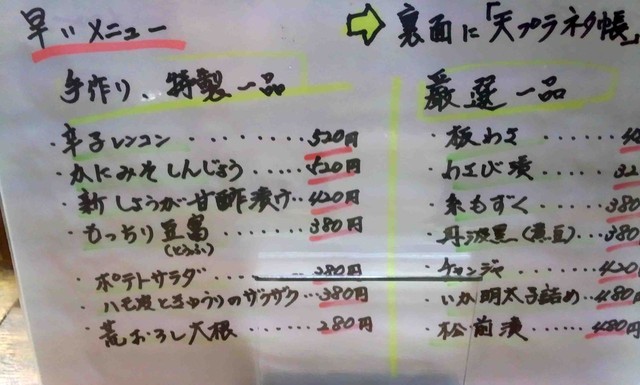 早いメニュー
裏面に「天プラネタ帳」
手作り、特製一品
辛子レンコン・・・・・・・・520円
かにみそしんじょう・・・・・520円
新しょうが甘酢漬ケ・・420円
もっちり豆富・・・・・・・380円
(とうふ)
ポテトサラダ・・・・・・・・380円
ハモ皮ときゅうりのザクザク・・380円
荒おろし大根・・・・・・・280円
厳選一品
・板わさ・・・・・・・
・わさび漬・・・・・・32
・糸もずく・・・・・・380
・丹波黒(煮豆)・・380
・チャンジャ・・・・・420
・いか明太子詰め・・480円
・松前漬・・・・・・480円